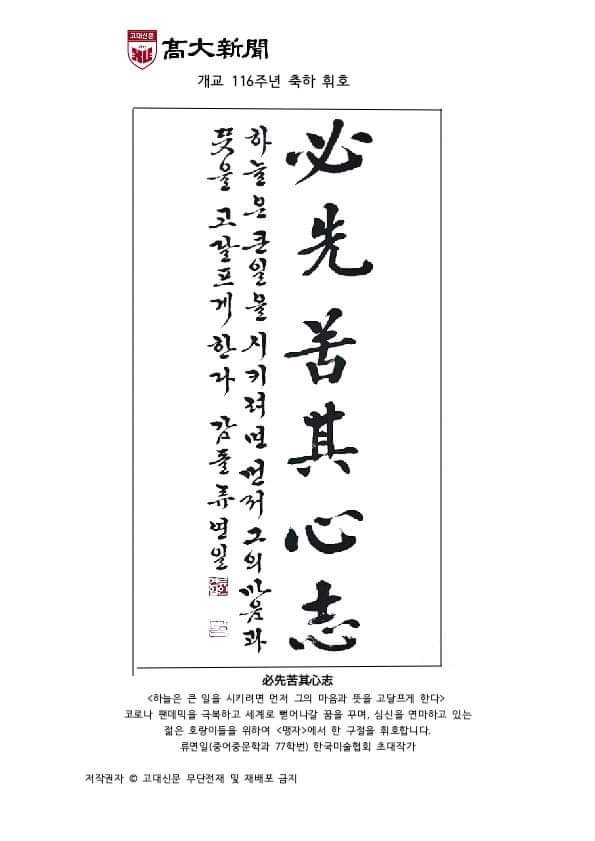 고대신문
高大新聞
개교 116주년 축하 휘호
必先苦其心志
하늘은 큰일을 시키려면 먼저 그의 마음과
뜻을 고달프게 한다 류면일
必先苦其心志
<하늘은 큰 일을 시키려면 먼저 그의 마음과 뜻을 고달프게 한다>
코로나 팬데믹을 극복하고 세계로 뻗어나갈 꿈을 꾸며, 심신을 연마하고 있는
젊은 호랑이들을 위하여 <맹자>에서 한 구절을 휘호합니다.
류면일(중어중문학과 77학번) 한국미술협회 초대작가
저작권자 © 고대신문 무단전재 및 재배포 금지